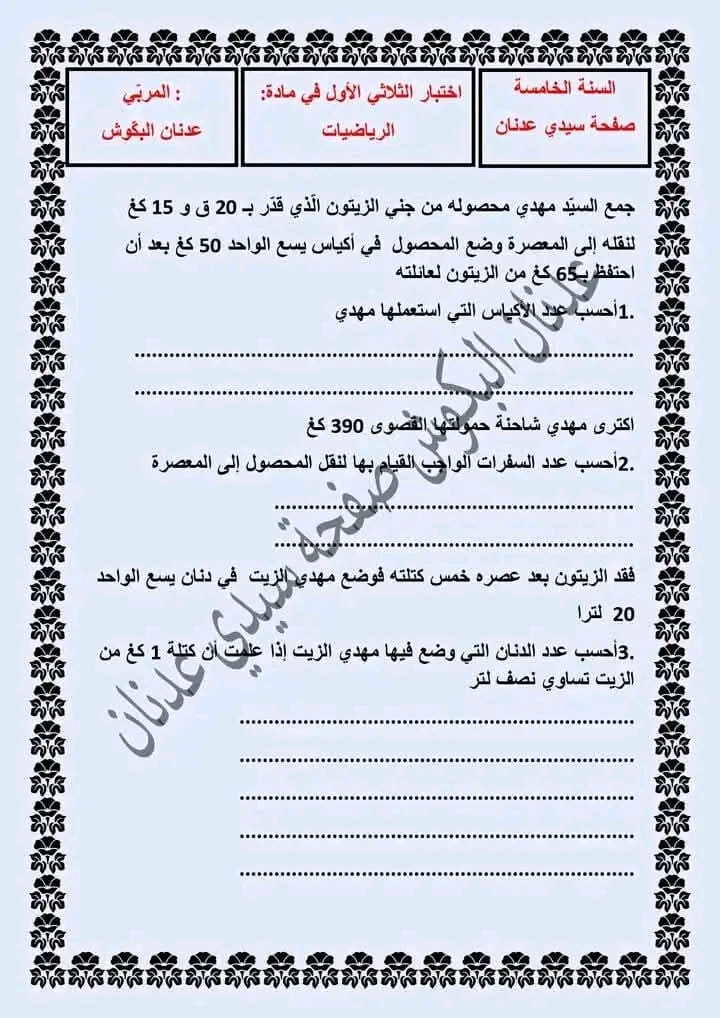 السنة الخامسة
صفحة سيدي عدنان
اختبار الثلاثي الأول في مادة:
الرياضيات
: المربّي
عدنان البكّوش
جمع السيّد مهدي محصوله من جني الزيتون الّذي قدّر بـ 20 ق و 15 كغ
لنقله إلى المعصرة وضع المحصول في أكياس يسع الواحد 50 كغ بعد أن
احتفظ بـ65 كغ من الزيتون لعائلته
.1أحسب عدد الأكياس التي استعملها مهدي
................................................................
................................................................
اكترى مهدي شاحنة حمولتها القصوى 390 كغ
.2أحسب عدد السفرات الواجب القيام بها لنقل المحصول إلى المعصرة
................................................
................................................
فقد الزيتون بعد عصره خمس كتلته فوضع مهدي الزيت في دنان يسع الواحد
20 لترا
.3أحسب عدد الدنان التي وضع فيها مهدي الزيت إذا علمت أن كتلة 1 كغ من
الزيت تساوي نصف لتر
....................................................
....................................................
....................................................
....................................................
....................................................
عدنان البكوش صفحة سيدي عدنان